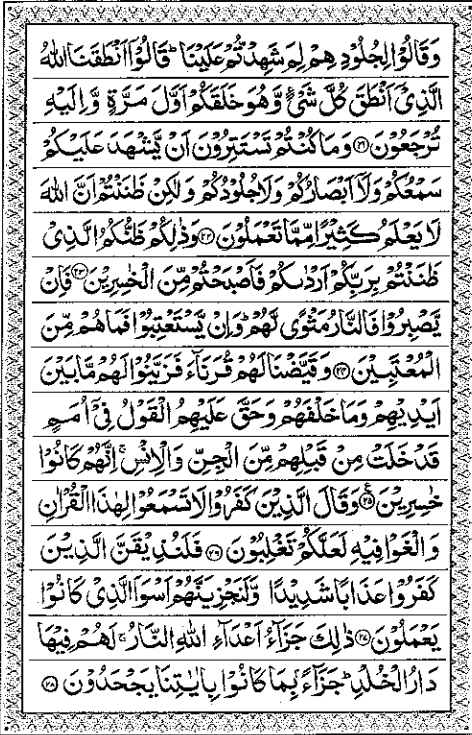 وَقَالُوْا لِجُلُوْدِهِمْ لِمَ شَهِدْتُّمْ عَلَيْنَا ؕ قَالُوْۤا اَنْطَقَنَا اللّٰهُ
الَّذِىْۤ اَنْطَقَ كُلَّ شَىْءٍ وَّهُوَ خَلَقَكُمْ اَوَّلَ مَرَّةٍ وَّاِلَيْهِ
تُرْجَعُوْنَ ۝۲۱ وَمَا كُنْتُمْ تَسْتَتِرُوْنَ اَنْ يَّشْهَدَ عَلَيْكُمْ
سَمْعُكُمْ وَلَاۤ اَبْصَارُكُمْ وَلَا جُلُوْدُكُمْ وَلٰكِنْ ظَنَنْتُمْ اَنَّ اللّٰهَ
لَا يَعْلَمُ كَثِيْرًا مِّمَّا تَعْمَلُوْنَ ۝۲۲ وَذٰلِكُمْ ظَنُّكُمُ الَّذِىْ
ظَنَنْتُمْ بِرَبِّكُمْ اَرْدٰىكُمْ فَاَصْبَحْتُمْ مِّنَ الْخٰسِرِيْنَ ۝۲۳ فَاِنْ
يَّصْبِرُوْا فَالنَّارُ مَثْوًى لَّهُمْ ؕ وَاِنْ يَّسْتَعْتِبُوْا فَمَا هُمْ مِّنَ
الْمُعْتَبِيْنَ ۝۲۴ وَقَيَّضْنَا لَهُمْ قُرَنَآءَ فَزَيَّنُوْا لَهُمْ مَّا بَيْنَ
اَيْدِيْهِمْ وَمَا خَلْفَهُمْ وَحَقَّ عَلَيْهِمُ الْقَوْلُ فِىْۤ اُمَمٍ
قَدْ خَلَتْ مِنْ قَبْلِهِمْ مِّنَ الْجِنِّ وَالْاِنْسِ ۚ اِنَّهُمْ كَانُوْا
خٰسِرِيْنَ ۝۲۵ وَقَالَ الَّذِيْنَ كَفَرُوْا لَا تَسْمَعُوْا لِهٰذَا الْقُرْاٰنِ
وَالْغَوْا فِيْهِ لَعَلَّكُمْ تَغْلِبُوْنَ ۝۲۶ فَلَنُذِيْقَنَّ الَّذِيْنَ
كَفَرُوْا عَذَابًا شَدِيْدًا وَّلَنَجْزِيَنَّهُمْ اَسْوَاَ الَّذِىْ كَانُوْا
يَعْمَلُوْنَ ۝۲۷ ذٰلِكَ جَزَآءُ اَعْدَآءِ اللّٰهِ النَّارُ ۚ لَهُمْ فِيْهَا
دَارُ الْخُلْدِ ؕ جَزَآءًۢ بِمَا كَانُوْا بِاٰيٰتِنَا يَجْحَدُوْنَ ۝۲۸